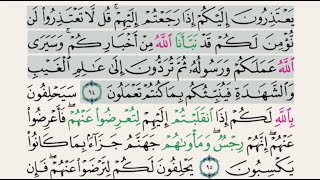 يَعْتَذِرُونَ إِلَيْكُمْ إِذَا رَجَعْتُمْ إِلَيْهِمْ ۚ قُل لَّا تَعْتَذِرُوا۟ لَن
نُّؤْمِنَ لَكُمْ قَدْ نَبَّأَنَا ٱللَّهُ مِنْ أَخْبَارِكُمْ ۚ وَسَيَرَى
ٱللَّهُ عَمَلَكُمْ وَرَسُولُهُۥ ثُمَّ تُرَدُّونَ إِلَىٰ عَٰلِمِ ٱلْغَيْبِ
وَٱلشَّهَٰدَةِ فَيُنَبِّئُكُم بِمَا كُنتُمْ تَعْمَلُونَ ٩٤ سَيَحْلِفُونَ
بِٱللَّهِ لَكُمْ إِذَا ٱنقَلَبْتُمْ إِلَيْهِمْ لِتُعْرِضُوا۟ عَنْهُمْ ۖ فَأَعْرِضُوا۟
عَنْهُمْ ۖ إِنَّهُمْ رِجْسٌ ۖ وَمَأْوَىٰهُمْ جَهَنَّمُ جَزَآءًۢ بِمَا كَانُوا۟
يَكْسِبُونَ ٩٥ يَحْلِفُونَ لَكُمْ لِتَرْضَوْا۟ عَنْهُمْ ۖ فَإِن